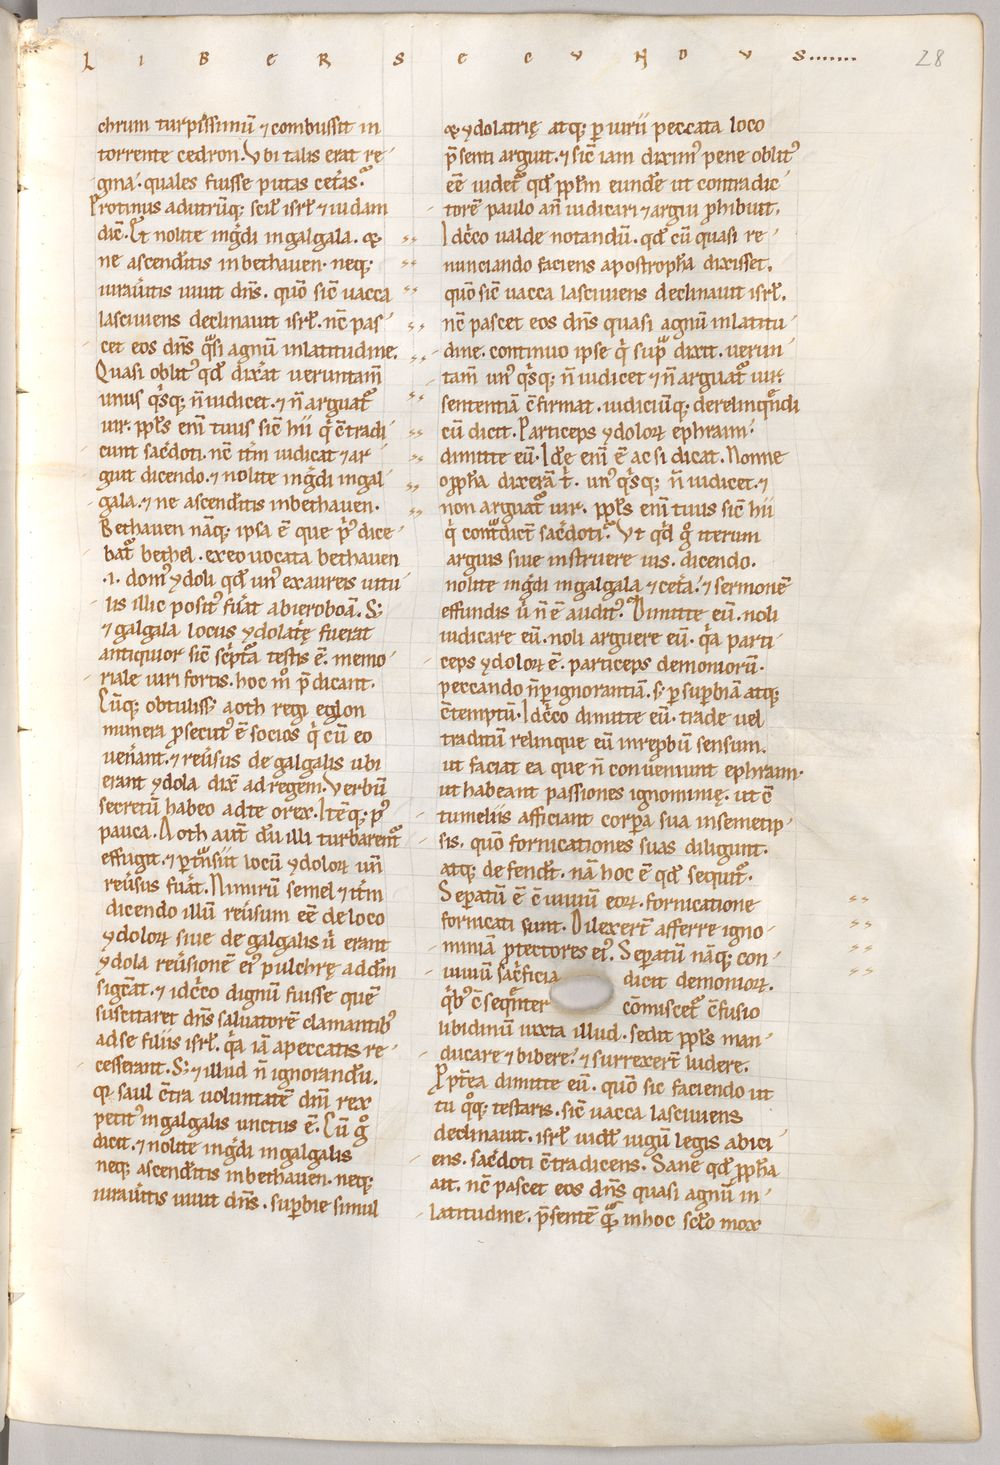 LIBER SECVNDVS.......
28
chrum turpissimū ⁊ combussit in
torrente cedron. Vbi talis erat re
gina. quales fuisse putas cet̄as.
Protinus adutrūq; scil̄ isrł ⁊ iudam
dic̄. Et nolite ingͥdi ingalgala. ⁊
ne ascend̄itis inbethauen. neq;
iurau̅itis uiuit dn̄s. quō sic̄ uacca
lasciuiens declinauit isrł. nc̄ pas
cet eos dn̄s qͣsi agnū inlatitudine.
Quasi oblitꝰ qđ dix̄at ueruntam̄
unus qͥsq; n̄ iudicet. ⁊ n̄ arguat᷑
uir. ppłs eni᷑ tuus sic̄ hii qͥ c̄tradi
cunt sac̄doti. nc̄ itm̄ iudicat ⁊ ar
guit dicendo. ⁊ nolite ingͥdi ingal
gala. ⁊ ne ascend̄itis inbethauen.
Bethauen nāq; ipsa ē que pͥꝰ dice
bat᷑ bethel. exeo uocata bethauen
.i. domꝰ ydoli qđ unꝰ exaureis uitu
lis illic positꝰ fuāt abieroboā. S;
⁊ galgala locus ydolat̄ę fuerat
antiquior sic̄ sc̄pta testis ē. memo
riale uiri fortis. hoc m̊ p̄dicant.
Cūq; obtuliss; aoth regi eglon
munera ꝓsecutꝰ ē socios qͥ cū eo
uen̄ant. ⁊ reu̅sus de galgalis ubi
erant ydola dix̄ ad regem. Verbū
secretū habeo adte o rex. Itēq; pꝰ
pauca. Aoth aut̄ dū illi turbarent᷑
effugit. ⁊ ꝑtͣnsiit locū ydoloꝝ un̄
reu̅sus fuāt. Nimirū semel ⁊ itm̄
dicendo illū reu̅sum eē de loco
ydoloꝝ siue de galgalis u̇ erant
ydola reu̅sionē eiꝰ pulchrę addm̄
sigc̄at. ⁊ idc̄co dignū fuisse quē
suscitaret dn̄s saluatorē clamantibꝰ
adse filiis isrł. qͥa iā apeccatis re
cesserant. S; ⁊ illud n̄ ignorandū.
qꝫ saul c̄tra uoluntatē dn̄i rex
petitꝰ ingalgalis unctus ē. Cū g̊
dicit. ⁊ nolite ingͥdi ingalgalis
neq; ascend̄itis inbethauen. neq;
iurau̅itis uiuit dn̄s. suꝑbie simul
⁊ ydolatrię atq; ꝑiurii peccata loco
p̄senti arguit. ⁊ sic̄ iam diximꝰ pene oblitꝰ
eē uidet᷑ qđ ppłm eundē ut contradic
torē paulo an̄ iudicari ⁊ argui ꝓhibuit.
Idc̄co ualde notandū. qđ cū quasi re
nunciando faciens apostropha dixisset.
quō sic̄ uacca lasciuiens declinauit isrł.
nc̄ pascet eos dn̄s quasi agnū inlatitu
dine. continuo ipse qͥ supͣ dixit. uerun
tam̄ unꝰ qͥsq; n̄ iudicet ⁊ n̄ arguat᷑ uir.
sententiā c̄firmat. iudiciūq; derelinqͣndi
cū dicit. Particeps ydoloꝝ ephraim.
dimitte eū. Idē eni᷑ ē ac si dicat. Nonne
o ppha dixerā t̄. unꝰ qͥsq; n̄ iudicet. ⁊
non arguat᷑ uir. ppłs eni᷑ tuus sic̄ hii
qͥ contͣdict̄ sac̄doti. Vt qͥd g̊ iterum
arguis siue instruere uis. dicendo.
nolite ingͥdi ingalgala ⁊ cet̄a. ⁊ sermonē
effundis u̇ n̄ ē auditꝰ. Dimitte eū. noli
iudicare eū. noli arguere eū. qͥa parti
ceps ydoloꝝ ē. particeps demoniorū.
peccando n̄ ꝑignorantiā. s; ꝑ suꝑbiā atq;
c̄temptū. Idc̄co dimitte eū. trade uel
traditū relinque eū inrep̄bū sensum.
ut faciat ea que n̄ conueniunt ephraim.
ut habeant passiones ignominię. ut c̄
tumeliis afficiant corꝑa sua insemetip
sis. quō fornicationes suas diligunt.
atq; defendt̄. nā hoc ē qđ sequit᷑.
Seꝑatū ē c̄uiuiū eoꝝ. fornicatione
fornicati sunt. Dilexert̄ afferre igno
miniā ꝓtectores eiꝰ. Seꝑatū nāq; con
uiuiū sac̄ficia dicit demonioꝝ.
qͥbꝰ c̄seqͣnter cōmiscet᷑ c̄fusio
libidinū iuxta illud. sedit ppłs man
ducare ⁊ bibere. ⁊ surrexert̄ ludere.
Ꝓpt̄ea dimitte eū. quō sic faciendo ut
tu qͦq; testaris. sic̄ uacca lasciuiens
declinauit. isrł uidł iugū legis abici
ens. sac̄doti c̄tradicens. Sane qđ ppha
ait. nc̄ pascet eos dn̄s quasi agnū in
latitudine. p̄sentē inhoc sclo mox